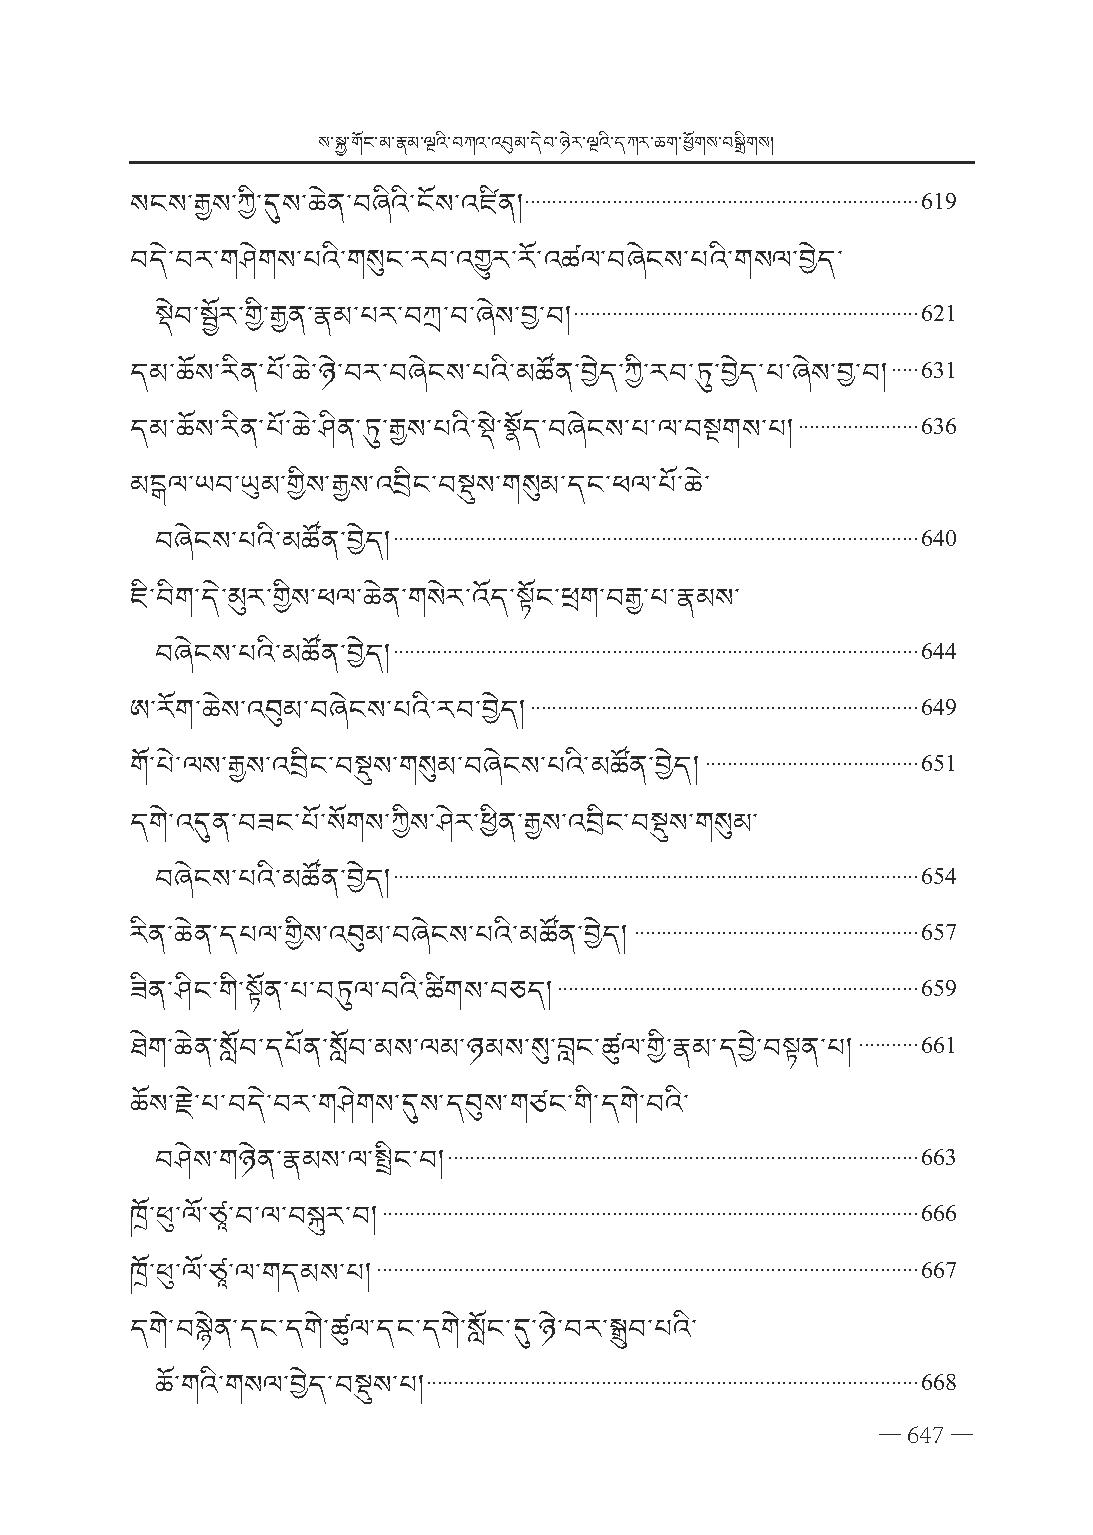 ས་སྐྱ་གོང་མ་རྣམ་ལྔའི་བཀའ་འབུམ་དེབ་ཉེར་ལྔའི་དཀར་ཆག་ཕྱོགས་བསྒྲིགས།
སངས་རྒྱས་ཀྱི་དུས་ཆེན་བཞིའི་ངོས་འཛིན།……619
བདེ་བར་གཤེགས་པའི་གསུང་རབ་འགྱུར་རོ་འཚལ་བཞེངས་པའི་གསལ་བྱེད་
སྡེབ་སྦྱོར་གྱི་རྒྱན་རྣམ་པར་བཀྲ་བ་ཞེས་བྱ་བ།……621
དམ་ཆོས་རིན་པོ་ཆེ་ཉེ་བར་བཞེངས་པའི་མཚོན་བྱེད་ཀྱི་རབ་ཏུ་བྱེད་པ་ཞེས་བྱ་བ།……631
དམ་ཆོས་རིན་པོ་ཆེ་ཤིན་ཏུ་རྒྱས་པའི་སྡེ་སྣོད་བཞེངས་པ་ལ་བསྔགས་པ།……636
མངྒལ་ཡབ་ཡུམ་གྱིས་རྒྱས་འབྲིང་བསྡུས་གསུམ་དང་ཕལ་པོ་ཆེ་
བཞེངས་པའི་མཚོན་བྱེད།……640
ཇི་བིག་དེ་མུར་གྱིས་ཕལ་ཆེན་གསེར་འོད་སྟོང་ཕྲག་བརྒྱ་པ་རྣམས་
བཞེངས་པའི་མཚོན་བྱེད།……644
ཨ་རོག་ཆེས་འབུམ་བཞེངས་པའི་རབ་བྱེད།……649
གོ་པེ་ལས་རྒྱས་འབྲིང་བསྡུས་གསུམ་བཞེངས་པའི་མཚོན་བྱེད།……651
དགེ་འདུན་བཟང་པོ་སོགས་ཀྱིས་ཤེར་ཕྱིན་རྒྱས་འབྲིང་བསྡུས་གསུམ་
བཞེངས་པའི་མཚོན་བྱེད།……654
རིན་ཆེན་དཔལ་གྱིས་འབུམ་བཞེངས་པའི་མཚོན་བྱེད།……657
ཟིན་ཤིང་གི་སྟོན་པ་བཏུལ་བའི་ཚིགས་བཅད།……659
ཐེག་ཆེན་སློབ་དཔོན་སློབ་མས་ལམ་ཉམས་སུ་བླང་ཚུལ་གྱི་རྣམ་དབྱེ་བསྟན་པ།……661
ཆོས་རྗེ་པ་བདེ་བར་གཤེགས་དུས་དབུས་གཙང་གི་དགེ་བའི་
བཤེས་གཉེན་རྣམས་ལ་སྤྲིང་བ།……663
ཁྲོ་ཕུ་ལོ་ཙཱ་བ་ལ་བསྐུར་བ།……666
ཁྲོ་ཕུ་ལོ་ཙཱ་ལ་གདམས་པ།……667
དགེ་བསྙེན་དང་དགེ་ཚུལ་དང་དགེ་སློང་དུ་ཉེ་བར་སྒྲུབ་པའི་
ཆོ་གའི་གསལ་བྱེད་བསྡུས་པ།……668
— 647 —